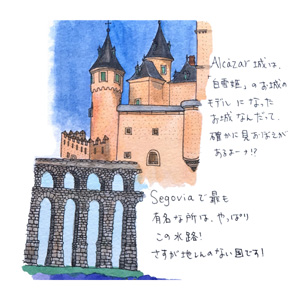 Alcázar城は、
「白雪姫」のお城の
モデルになった
お城なんだって。
確かに見おぼえが
あるよーナ!?
Segoviaで最も
有名な所は、やっぱり
この水路!
さすが地しんのない国です!